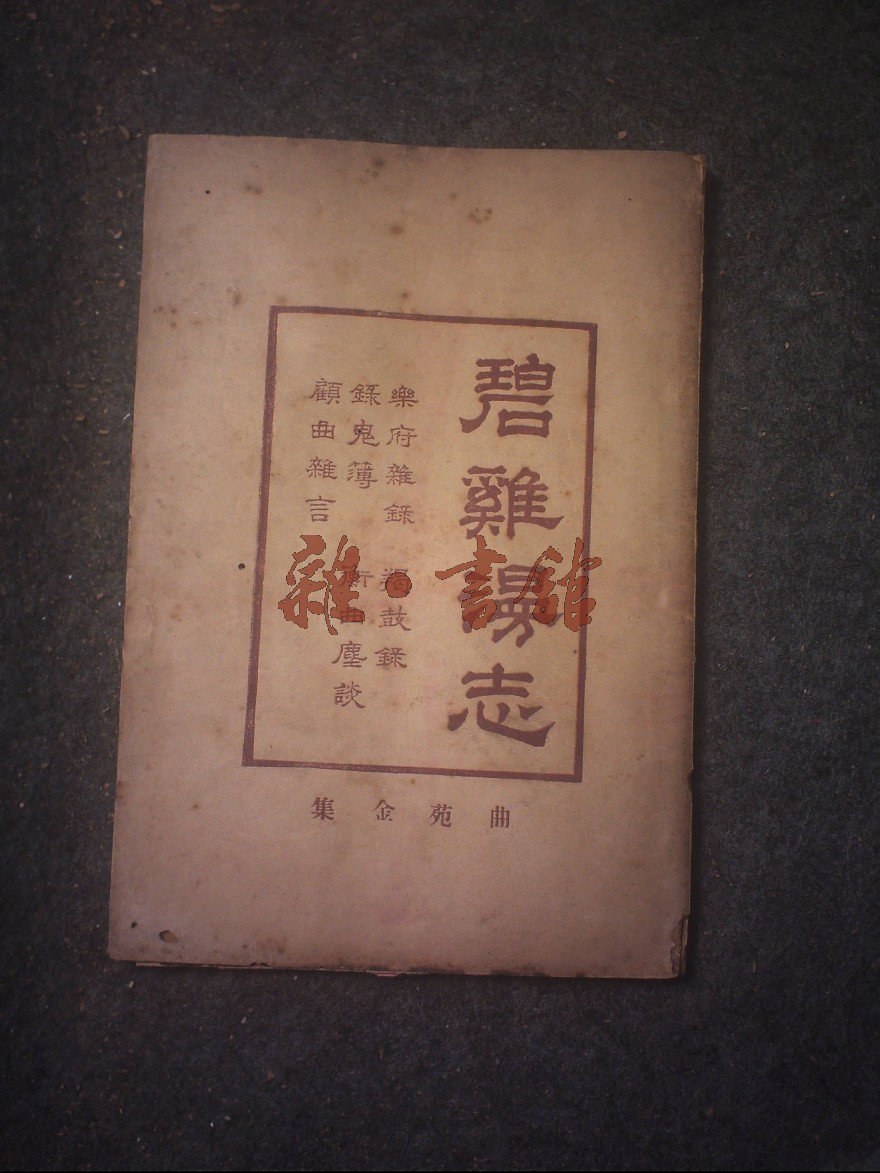 碧雞漫志
樂府雜錄 羯鼓錄
錄鬼簿 衡曲塵談
顧曲雜言
曲苑金集
雜·書館